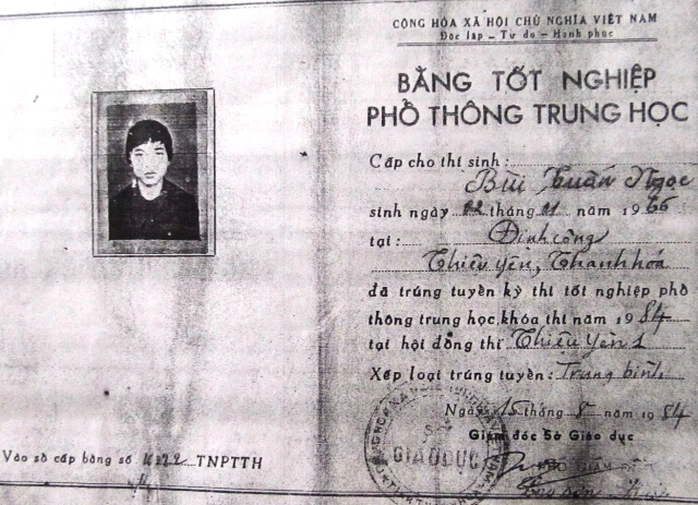 CỘNG HÒA XÃ HỘI CHỦ NGHĨA VIỆT NAM
Độc lập - Tự do - Hạnh phúc
BẰNG TỐT NGHIỆP
PHỔ THÔNG TRUNG HỌC
Cấp cho thí sinh:
Bùi Xuân Ngọc
sinh ngày 02 tháng 01 năm 1966
tại: Định công
Thiệu yên, Thanh hóa
đã trúng tuyển kỳ thi tốt nghiệp phổ
thông trung học, khóa thi năm 1984
tại hội đồng thi Thiệu yên 1
Xếp loại trúng tuyển: Trung bình
Ngày 15 tháng 8 năm 1984
Giám đốc Sở Giáo dục
PHÓ GIÁM
GIÁO DỤC
Vào sổ cấp bằng số TNPTTH